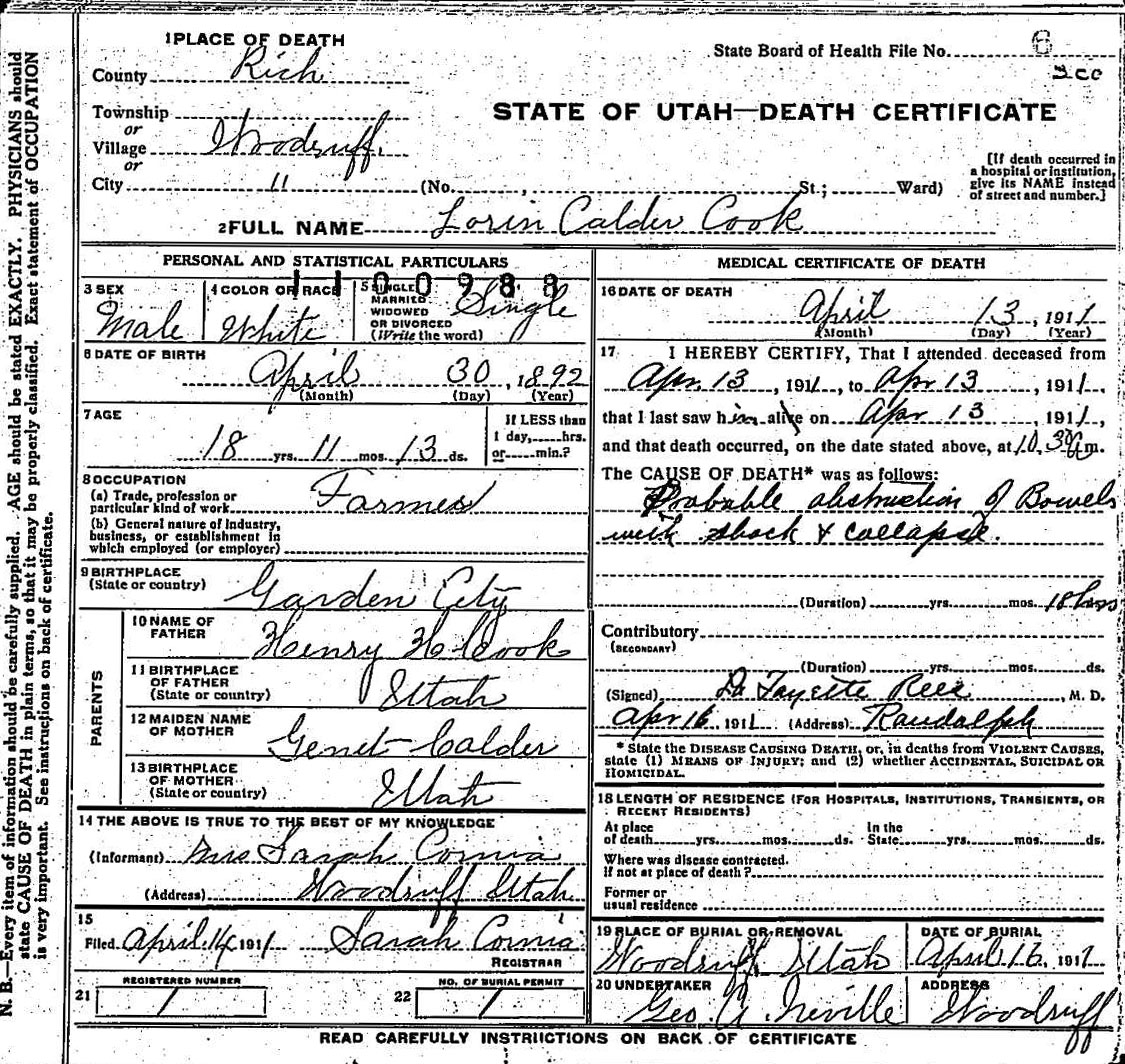 N. B.—Every item of information should be carefully supplied. AGE should be stated EXACTLY. PHYSICIANS should
state CAUSE OF DEATH in plain terms, so that it may be properly classified. Exact statement of OCCUPATION
is very important. See instructions on back of certificate.
1 PLACE OF DEATH
County Rich
Township
or
Village Woodruff.
or
City " (No. , St.; Ward)
State Board of Health File No. 6
STATE OF UTAH—DEATH CERTIFICATE
[If death occurred in
a hospital or institution,
give its NAME instead
of street and number.]
2 FULL NAME Lorin Calder Cook
PERSONAL AND STATISTICAL PARTICULARS
1100988
3 SEX
Male
4 COLOR OR RACE
White
5 SINGLE
MARRIED
WIDOWED
OR DIVORCED
(Write the word)
Single
6 DATE OF BIRTH
April 30, 1892
(Month) (Day) (Year)
7 AGE
18 yrs. 11 mos. 13 ds.
If LESS than
1 day, hrs.
or min.?
8 OCCUPATION
(a) Trade, profession or
particular kind of work Farmer
(b) General nature of Industry,
business, or establishment in
which employed (or employer)
9 BIRTHPLACE
(State or country) Garden City
PARENTS
10 NAME OF
FATHER Henry H. Cook
11 BIRTHPLACE
OF FATHER
(State or country) Utah
12 MAIDEN NAME
OF MOTHER Genet Calder
13 BIRTHPLACE
OF MOTHER
(State or country) Utah
14 THE ABOVE IS TRUE TO THE BEST OF MY KNOWLEDGE
(Informant) Mrs Sarah Cornia
(Address) Woodruff Utah
15
Filed April 14 1911 Sarah Cornia
REGISTRAR
REGISTERED NUMBER
21
NO. OF BURIAL PERMIT
22
MEDICAL CERTIFICATE OF DEATH
16 DATE OF DEATH
April 13, 1911
(Month) (Day) (Year)
17 I HEREBY CERTIFY, That I attended deceased from
Apr. 13, 1911, to Apr 13, 1911,
that I last saw him alive on Apr 13, 1911,
and that death occurred, on the date stated above, at 10.30 m.
The CAUSE OF DEATH* was as follows:
Probable obstruction of Bowels
with shock & collapse.
(Duration) yrs. mos. 18 hrs
Contributory
(SECONDARY)
(Duration) yrs. mos. ds.
(Signed) Fayette Rees, M. D.
Apr 16, 1911 (Address) Randalph
* State the DISEASE CAUSING DEATH, or, in deaths from VIOLENT CAUSES,
state (1) MEANS OF INJURY; and (2) whether ACCIDENTAL, SUICIDAL OR
HOMICIDAL.
18 LENGTH OF RESIDENCE (FOR HOSPITALS, INSTITUTIONS, TRANSIENTS, OR
RECENT RESIDENTS)
At place
of death yrs. mos. ds.
In the
State yrs. mos. ds.
Where was disease contracted.
If not at place of death?
Former or
usual residence
19 PLACE OF BURIAL OR REMOVAL
Woodruff Utah
DATE OF BURIAL
April 16, 1911
20 UNDERTAKER
Geo. A. Neville
ADDRESS
Woodruff
READ CAREFULLY INSTRUCTIONS ON BACK OF CERTIFICATE